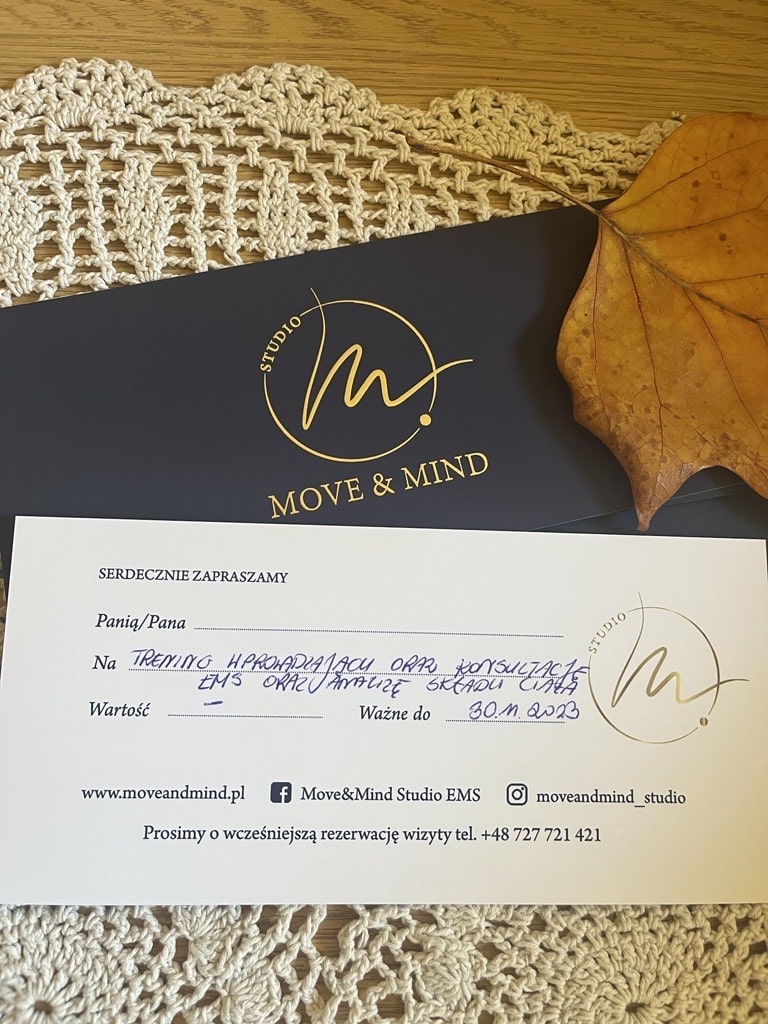 STUDIO
MOVE & MIND
SERDECZNIE ZAPRASZAMY
Panią/Pana
Na TRENING WPROWADZAJĄCY ORAZ KONSULTACJĘ
EMS ORAZ ANALIZĘ SKŁADU CIAŁA
Wartość – Ważne do 30.11.2023
STUDIO
www.moveandmind.pl Move&Mind Studio EMS moveandmind_studio
Prosimy o wcześniejszą rezerwację wizyty tel. +48 727 721 421